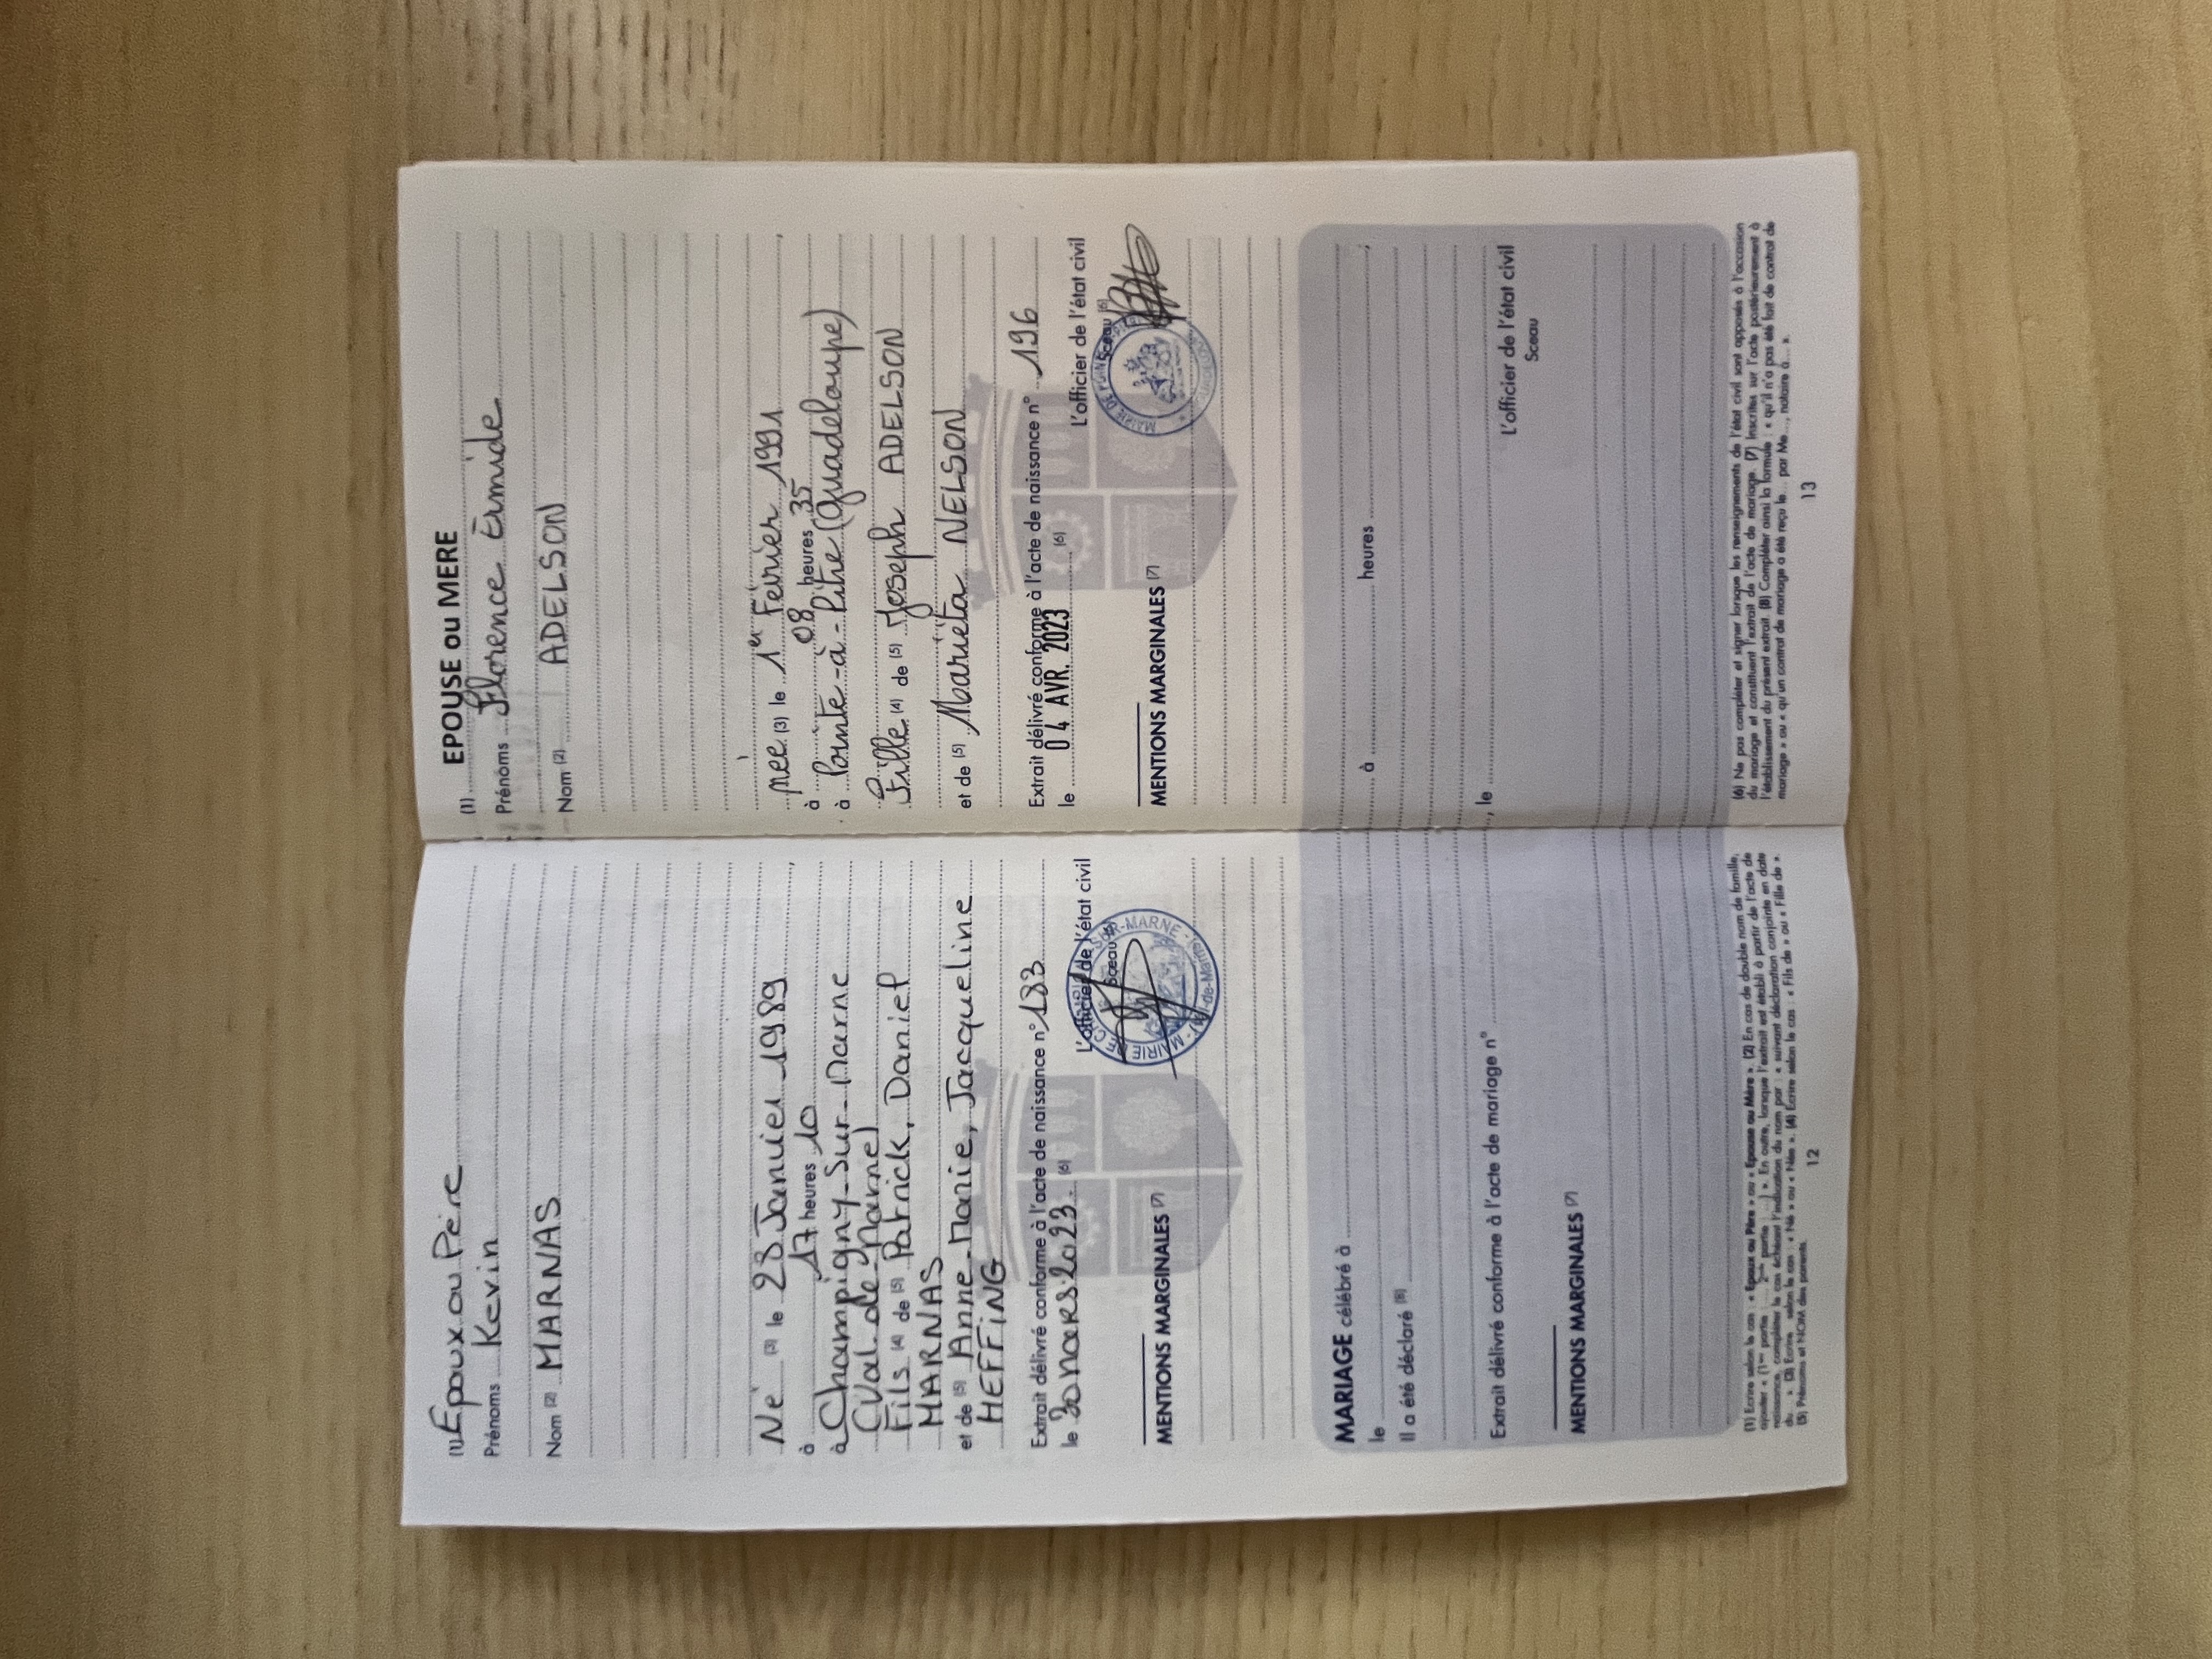 (1) Epoux ou Père
Prénoms Kevin
Nom (2) MARNAS
Né (3) le 23 Janvier 1989
à 17 heures 10
à Champigny-Sur-Marne
(Val-de-Marne)
Fils (4) de (5) Patrick, Daniel
MARNAS
et de (5) Anne-Marie, Jacqueline
HEFFING
Extrait délivré conforme à l'acte de naissance n° 183
le 30 mars 2023 (6)
L'officier de l'état civil
Sceau (6)
MENTIONS MARGINALES (7)
(1) EPOUSE ou MERE
Prénoms Florence Ermide
Nom (2) ADELSON
née (3) le 1er Février 1991
à 08 heures 35
à Pointe-à-Pitre (Guadeloupe)
Fille (4) de (5) Joseph ADELSON
et de (5) Marieta NELSON
Extrait délivré conforme à l'acte de naissance n° 196
le 04 AVR. 2023 (6)
L'officier de l'état civil
Sceau (6)
MENTIONS MARGINALES (7)
MARIAGE célébré à
le à heures
Il a été déclaré (8)
Extrait délivré conforme à l'acte de mariage n° , le
L'officier de l'état civil
Sceau
MENTIONS MARGINALES (7)
(1) Ecrire selon le cas : « Epoux ou Père » ou « Epouse ou Mère ». (2) En cas de double nom de famille,
ajouter « (1ère partie : ... 2nde partie : ...) ». En outre, lorsque l'extrait est établi à partir de l'acte de
naissance, compléter le cas échéant l'indication du nom par : « suivant déclaration conjointe en date
du... ». (3) Ecrire selon le cas : « Né » ou « Née ». (4) Ecrire selon le cas : « Fils de » ou « Fille de ».
(5) Prénoms et NOM des parents.
12
(6) Ne pas compléter et signer lorsque les renseignements de l'état civil sont apposés à l'occasion
du mariage et constituent l'extrait de l'acte de mariage. (7) Inscrites sur l'acte postérieurement à
l'établissement du présent extrait. (8) Compléter ainsi la formule : « qu'il n'a pas été fait de contrat de
mariage » ou « qu'un contrat de mariage a été reçu le... par Me..., notaire à... ».
13